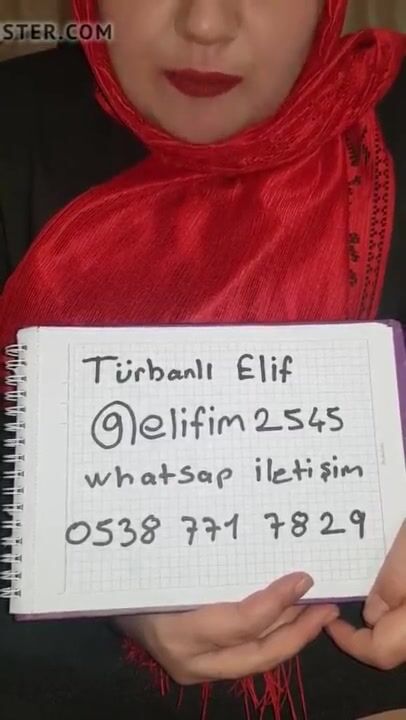 STER.COM
Türbanlı Elif
@elifim2545
whatsap iletişim
0538 771 7829